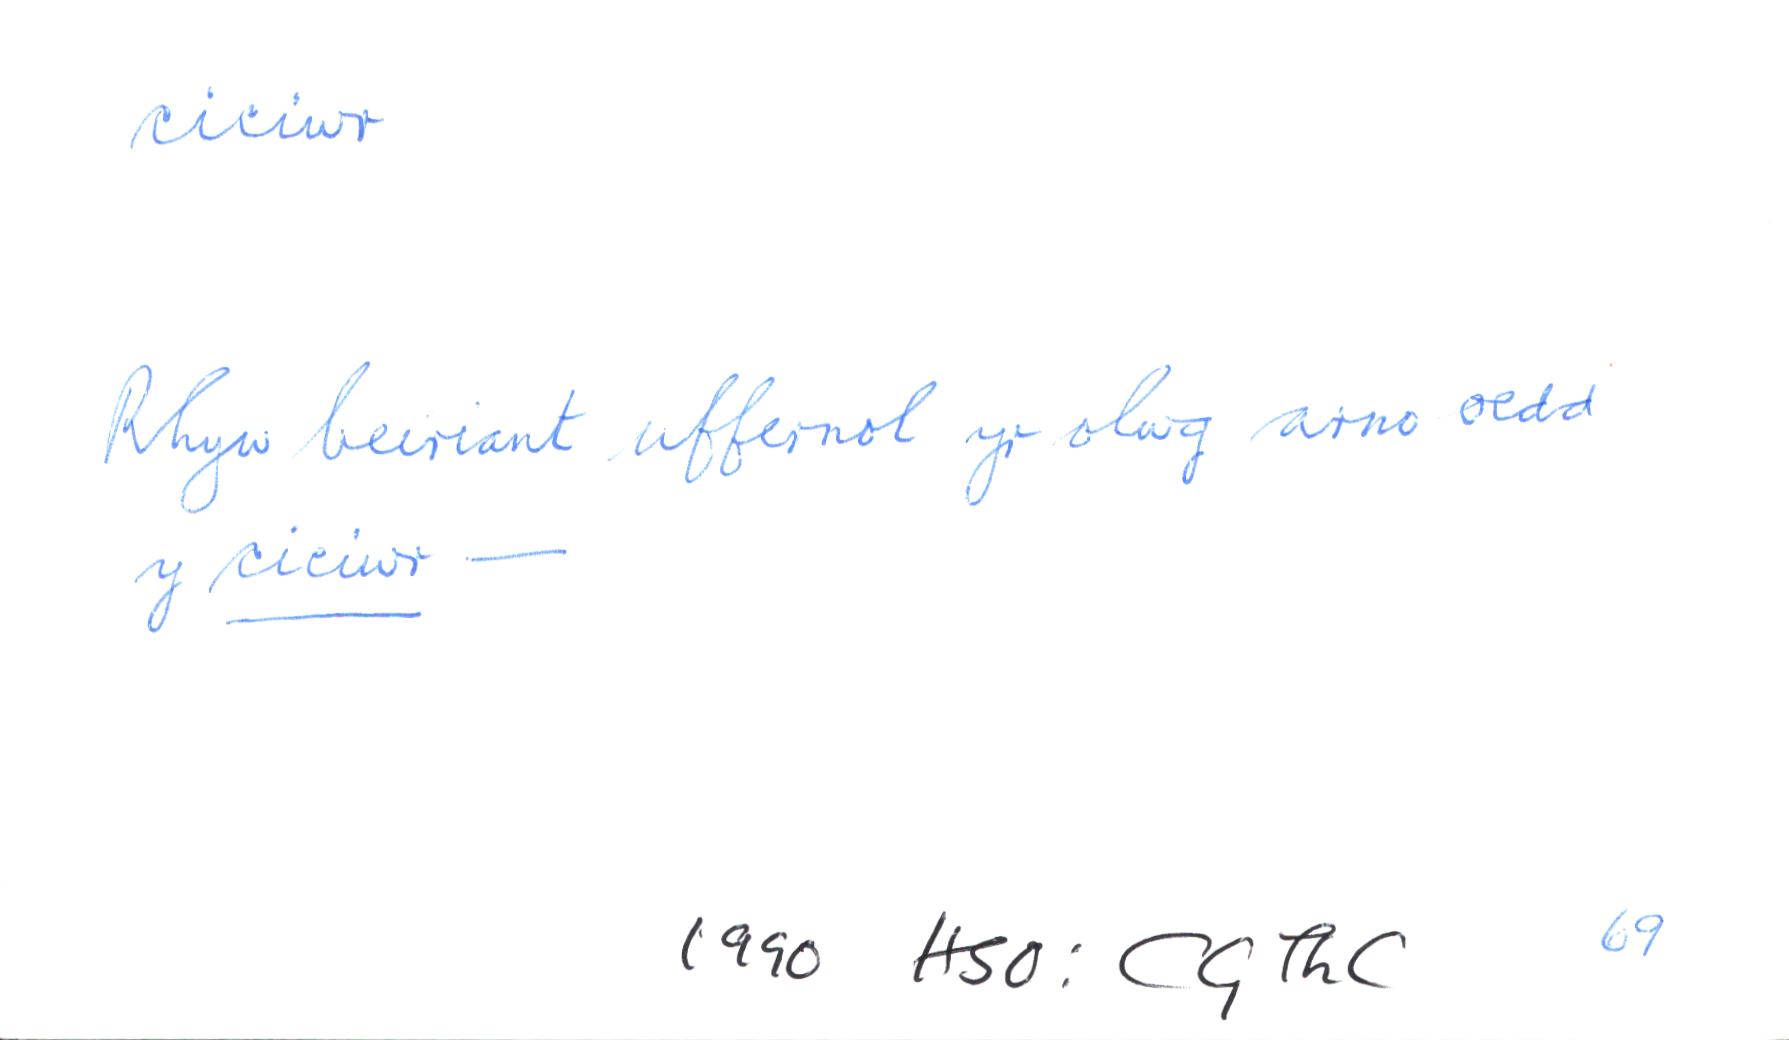 ciciwr
Rhyw beiriant uffernol yr olwg arno oedd
y ciciwr —
1990 HSO: CGThC 69